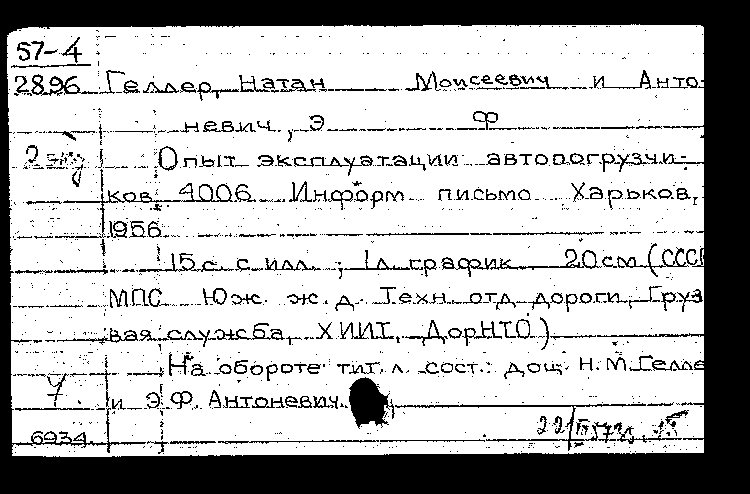 57-4
2896 Геллер, Натан Моисеевич и Анто-
невич, Э Ф
2 экз Опыт эксплуатации автопогрузчи-
ков 4006 Информ письмо Харьков,
1956
15 с. с илл. ; 1 л. график 20 см (СССР
МПС Юж. ж. д. Техн отд дороги, Груз
вая служба, ХИИТ, ДорНТО)
На обороте тит. л. сост.: доц. Н. М. Гелле
У и Э. Ф. Антоневич.
6934 22/